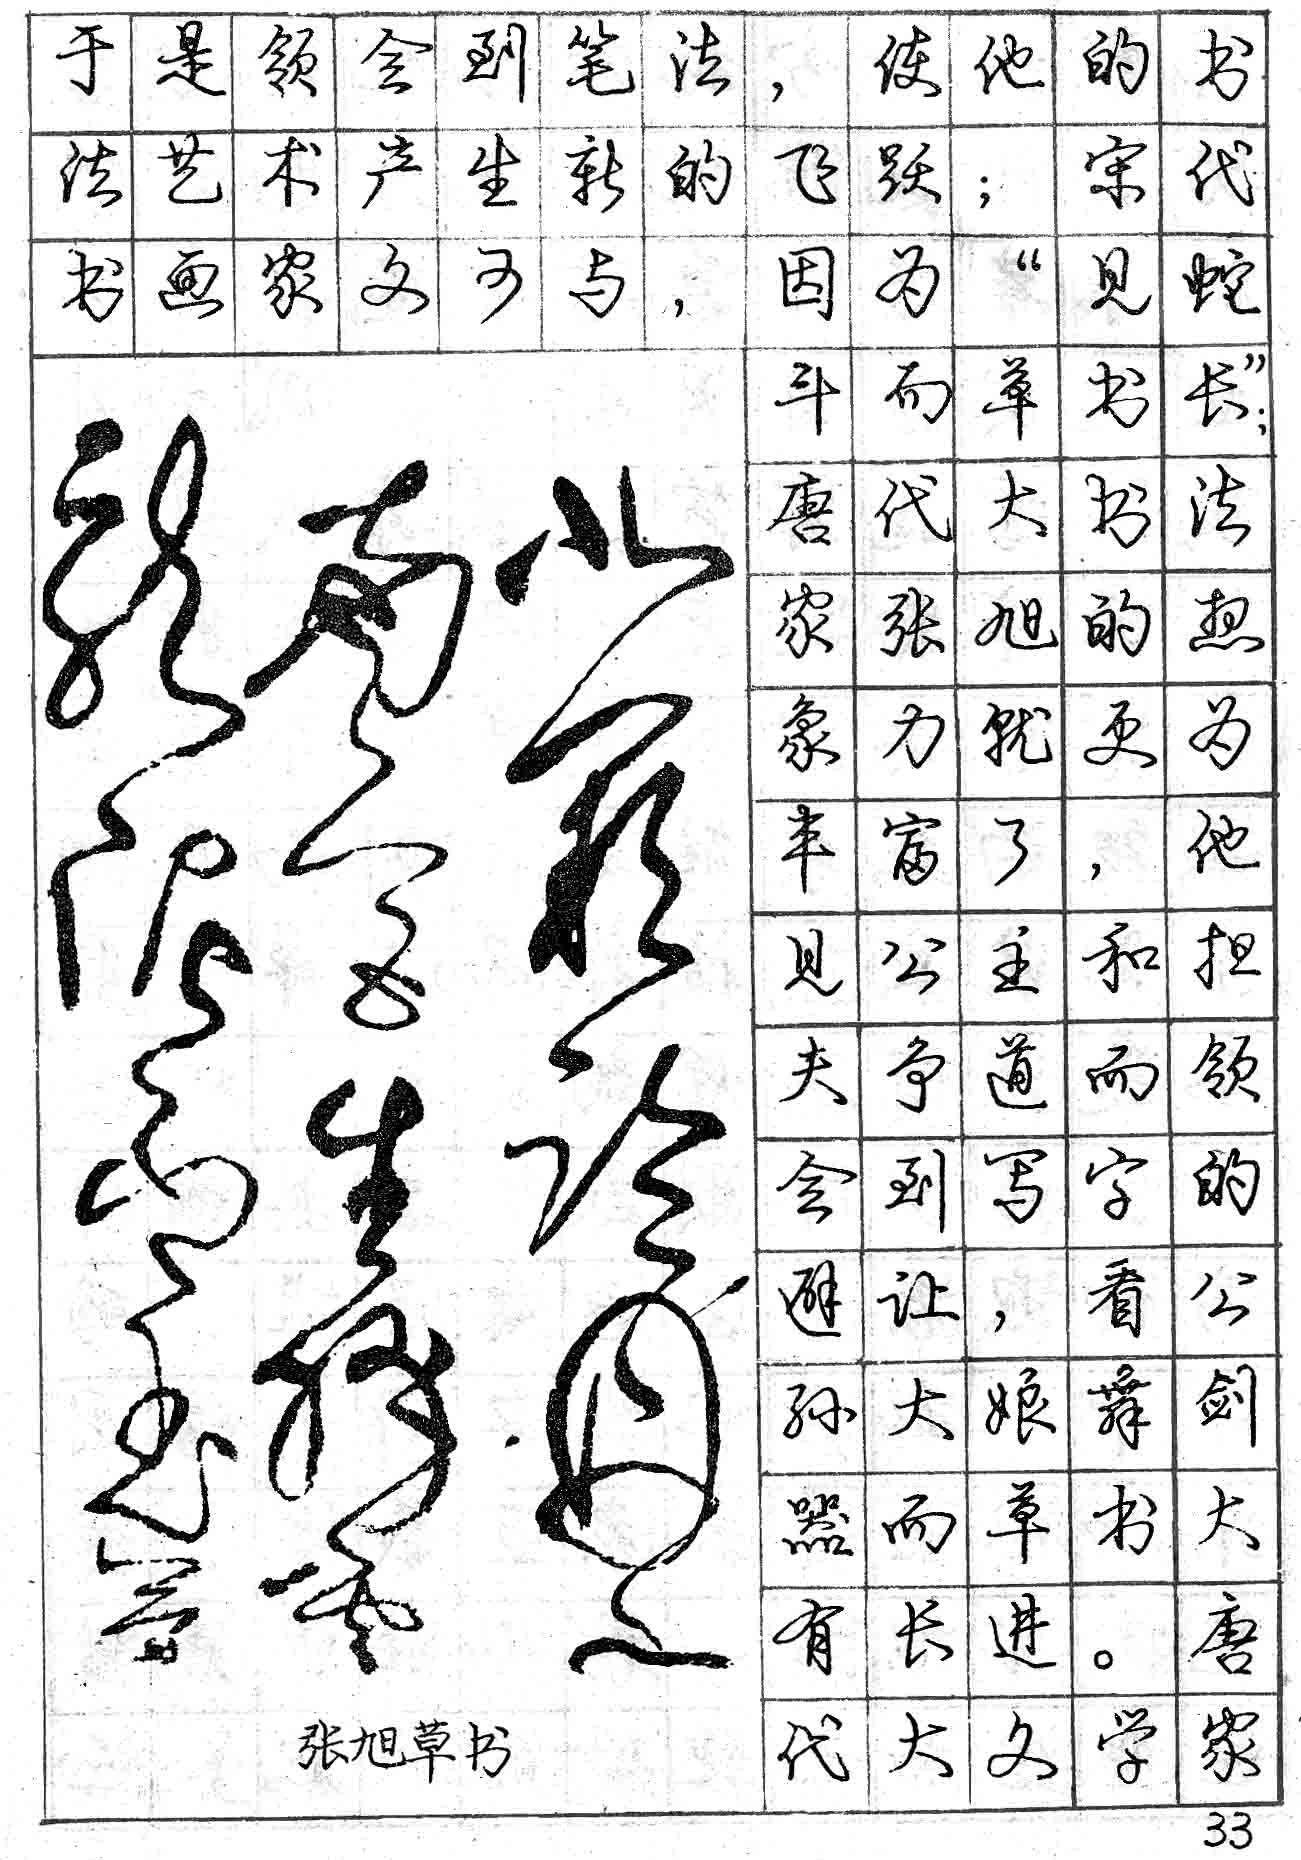 于是领会到笔法，使他的书
法艺术产生新的飞跃；宋代
书画家文可与，因为“见蛇
斗而草书长”；
唐代大书法
家张旭的想
象力就更为
丰富了，他
见公主和担
夫争道而领
会到写字的
避让，看公
孙大娘舞剑
器而草书大
有长进。唐
代大文学家
张旭草书
33